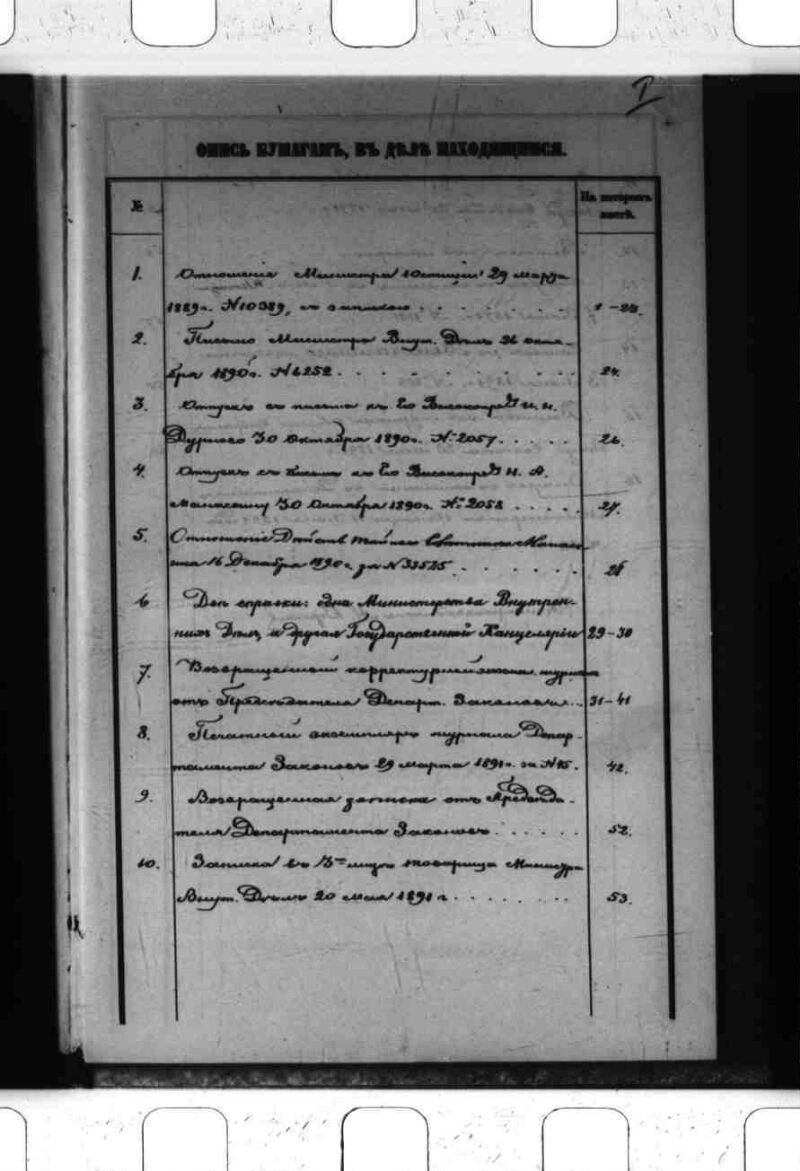 I
ОПИСЬ БУМАГАМЪ, ВЪ ДѢЛѢ НАХОДЯЩИМСЯ.
№
На которомъ листѣ.
1. Отношенія Министра Юстиціи 29 марта
1889 г. № 10389, съ запискою . . . . . . . 1-23.
2. Письмо Министра Внут. Дѣлъ 26 октя-
бря 1890 г. № 6252 . . . . . . . . 24.
3. Отпускъ съ письма къ Его Высокопред И. Н.
Дурново 30 Октября 1890 г. № 2057 . . . . . 26.
4. Отпускъ съ письма къ Его Высокопред Н. А.
Манасеину 30 Октября 1890 г. № 2058 . . . . . 27.
5. Отношеніе Дѣйств. тайнаго Совѣтника Манасе-
ина 16 Декабря 1890 г. за № 33525 . . . . . . 28
6 Двѣ справки: одна Министерства Внутрен-
нихъ Дѣлъ, а другая Государственной Канцеляріи 29-30
7. Возвращенный корректурный журнал
отъ Предсѣдателя Департ. Законовъ . . . 31-41
8. Печатный экземпляръ журнала Депар-
тамента Законовъ 29 марта 1891 г. за № 15. 42.
9. Возвращенная записка отъ Предсѣда-
теля Департамента Законовъ . . . . . . 52.
10. Записка въ 3мъ лицѣ товарища Министра
Внут. Дѣлъ 20 мая 1891 г . . . . . . . . 53.